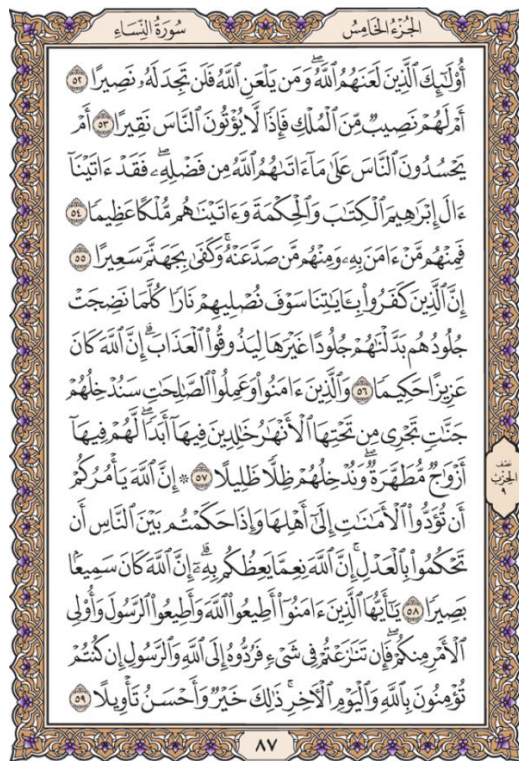 الجُزْءُ الخَامِسُ
سُورَةُ النِّسَاءِ
أُوْلَٰٓئِكَ ٱلَّذِينَ لَعَنَهُمُ ٱللَّهُۖ وَمَن يَلْعَنِ ٱللَّهُ فَلَن تَجِدَ لَهُۥ نَصِيرًا ٥٢
أَمْ لَهُمْ نَصِيبٌ مِّنَ ٱلْمُلْكِ فَإِذًا لَّا يُؤْتُونَ ٱلنَّاسَ نَقِيرًا ٥٣ أَمْ
يَحْسُدُونَ ٱلنَّاسَ عَلَىٰ مَآ ءَاتَىٰهُمُ ٱللَّهُ مِن فَضْلِهِۦۖ فَقَدْ ءَاتَيْنَآ
ءَالَ إِبْرَٰهِيمَ ٱلْكِتَٰبَ وَٱلْحِكْمَةَ وَءَاتَيْنَٰهُم مُّلْكًا عَظِيمًا ٥٤
فَمِنْهُم مَّنْ ءَامَنَ بِهِۦ وَمِنْهُم مَّن صَدَّ عَنْهُۚ وَكَفَىٰ بِجَهَنَّمَ سَعِيرًا ٥٥
إِنَّ ٱلَّذِينَ كَفَرُواْ بِـَٔايَٰتِنَا سَوْفَ نُصْلِيهِمْ نَارًا كُلَّمَا نَضِجَتْ
جُلُودُهُم بَدَّلْنَٰهُمْ جُلُودًا غَيْرَهَا لِيَذُوقُواْ ٱلْعَذَابَۗ إِنَّ ٱللَّهَ كَانَ
عَزِيزًا حَكِيمًا ٥٦ وَٱلَّذِينَ ءَامَنُواْ وَعَمِلُواْ ٱلصَّٰلِحَٰتِ سَنُدْخِلُهُمْ
جَنَّٰتٍ تَجْرِى مِن تَحْتِهَا ٱلْأَنْهَٰرُ خَٰلِدِينَ فِيهَآ أَبَدًاۖ لَّهُمْ فِيهَآ
أَزْوَٰجٌ مُّطَهَّرَةٌۖ وَنُدْخِلُهُمْ ظِلًّا ظَلِيلًا ٥٧ ۞ إِنَّ ٱللَّهَ يَأْمُرُكُمْ
أَن تُؤَدُّواْ ٱلْأَمَٰنَٰتِ إِلَىٰٓ أَهْلِهَا وَإِذَا حَكَمْتُم بَيْنَ ٱلنَّاسِ أَن
تَحْكُمُواْ بِٱلْعَدْلِۚ إِنَّ ٱللَّهَ نِعِمَّا يَعِظُكُم بِهِۦٓۗ إِنَّ ٱللَّهَ كَانَ سَمِيعًۢا
بَصِيرًا ٥٨ يَٰٓأَيُّهَا ٱلَّذِينَ ءَامَنُوٓاْ أَطِيعُواْ ٱللَّهَ وَأَطِيعُواْ ٱلرَّسُولَ وَأُوْلِى
ٱلْأَمْرِ مِنكُمْۖ فَإِن تَنَٰزَعْتُمْ فِى شَىْءٍ فَرُدُّوهُ إِلَى ٱللَّهِ وَٱلرَّسُولِ إِن كُنتُمْ
تُؤْمِنُونَ بِٱللَّهِ وَٱلْيَوْمِ ٱلْءَاخِرِۚ ذَٰلِكَ خَيْرٌ وَأَحْسَنُ تَأْوِيلًا ٥٩
نصف
الحزب
٩
٨٧